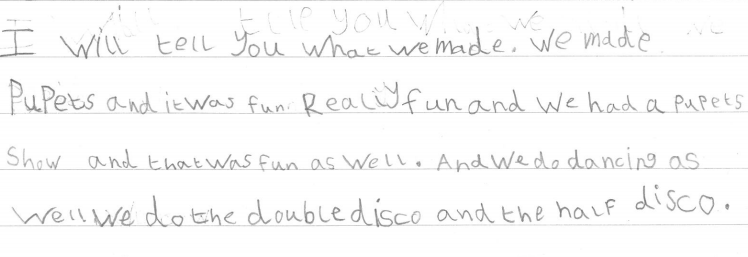 I will tell you what we made. we made
Pupets and it was fun. Really fun and we had a pupets
Show and that was fun as well. And we do dancing as
well we do the double disco and the half disco.